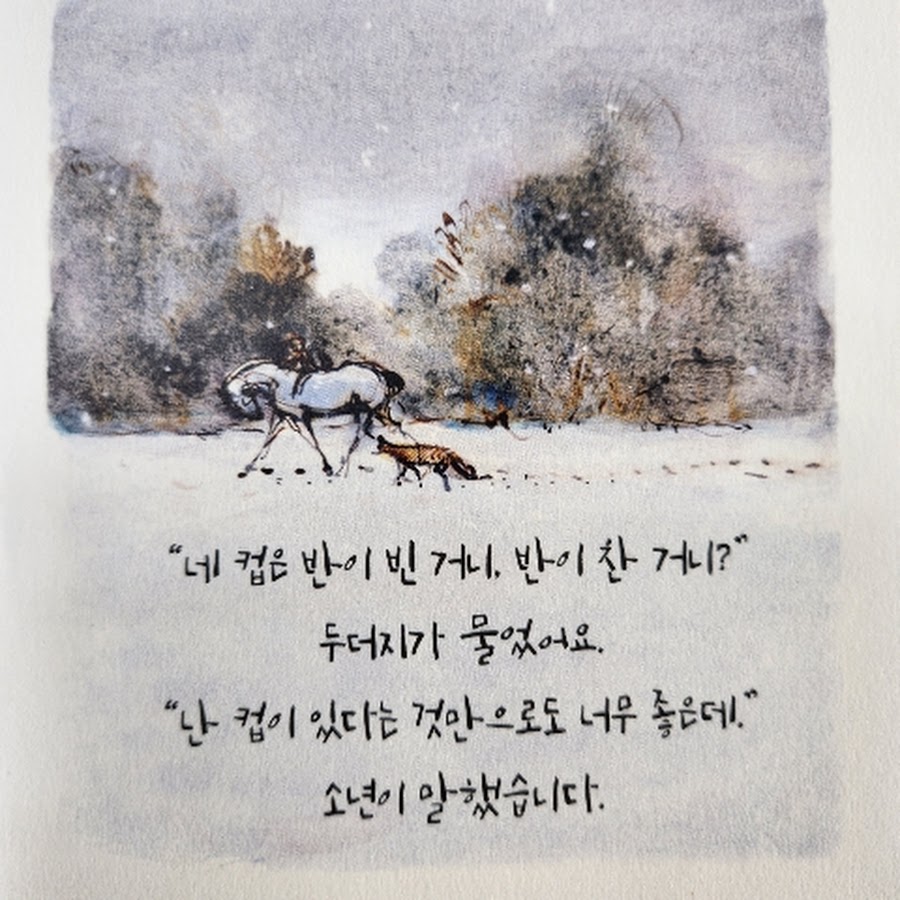 “네 컵은 반이 빈 거니, 반이 찬 거니?”
두더지가 물었어요.
“난 컵이 있다는 것만으로도 너무 좋은데.”
소년이 말했습니다.